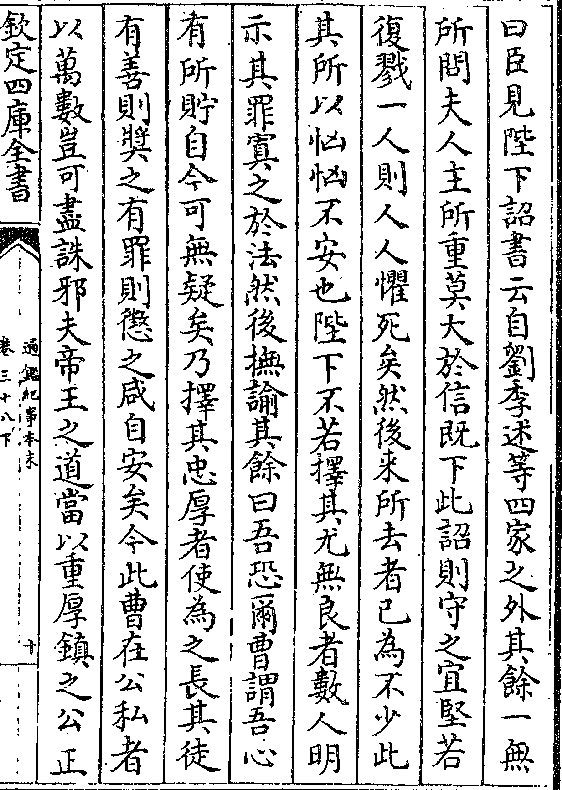 曰臣見陛下詔書云自劉季述等四家之外其餘一無
所問夫人主所重莫大於信既下此詔則守之宜堅若
復戮一人則人人懼死矣然後來所去者已為不少此
其所以恟恟不安也陛下不若擇其尤無良者數人明
示其罪寘之於法然後撫諭其餘曰吾恐爾曹謂吾心
有所貯自今可無疑矣乃擇其忠厚者使為之長其徒
有善則奬之有罪則懲之咸自安矣今此曹在公私者
以萬數豈可盡誅邪夫帝王之道當以重厚鎮之公正
欽定四庫全書
通鑑紀事本末
卷三十八下
十